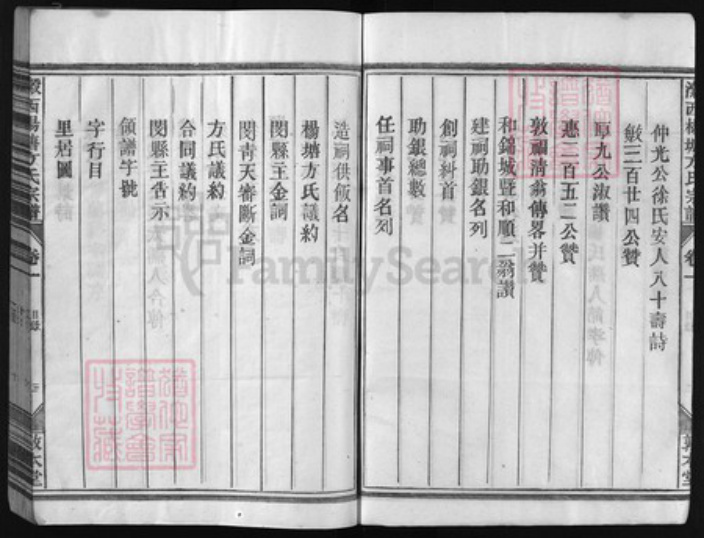 仲光公徐氏安人八十壽詩
緞三百廿四公贊
厚九公淑讚
惠二百五二公贊
敦福清翁傳畧并贊
和錦城暨和順二翁讃
建祠助銀名列
創祠糾首
助銀總數
任祠事首名列
造祠供飯名
楊塘方氏議約
閔縣主金詞
閔青天審斷金詞
方氏議約
合同議約
閔縣主告示
領譜字號
字行目
里居圖
西楊塘方氏宗譜
卷一
目錄
敦本堂
FamilySearch